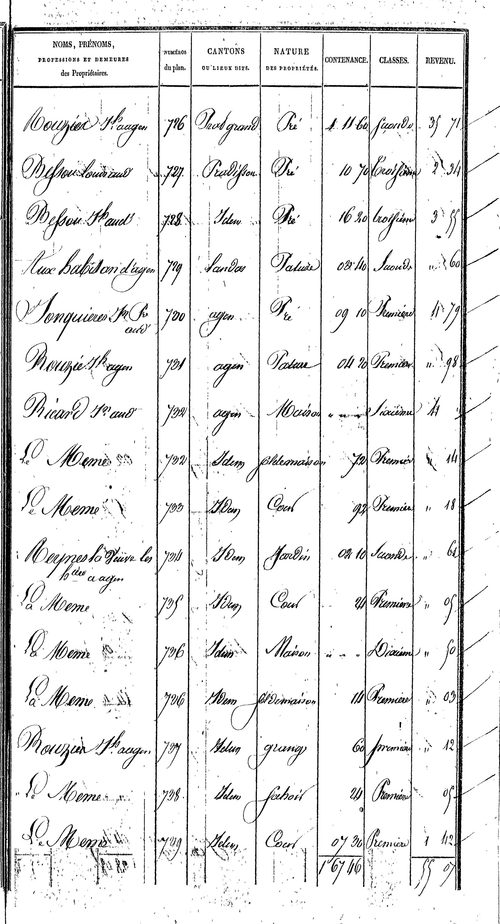 NOMS, PRÉNOMS, PROFESSIONS ET DEMEURES des Propriétaires. NUMÉROS du plan. CANTONS OU LIEUX DITS. NATURE DES PROPRIÉTÉS. CONTENANCE. CLASSES. REVENU.
Rouzier Jh agen 726 grand Pré 1 11 60 seconde 35 71
Besson 727 Pradisson Pré 10 70 troisieme 2 34
Besson Jh aud 728 Idem Pré 16 20 troisieme 3 55
Aux habitan d'agen 729 Landas Pature 02 40 seconde " 60
Jonquieres aud 730 agen Pré 09 10 Premiere 4 79
Rouzié Jh agen 731 agen Pature 04 20 Premiere " 98
Ricard Jn aud 732 agen Maison " " " Sixieme 4
Le Meme 732 Idem sol de maison 72 Premier " 14
Le Meme 733 Idem Cour 92 Premiere " 18
Meynes la Veuve les hers a agen 734 Idem Jardin 02 10 seconde " 61
La Meme 735 Idem Cour 24 Premiere " 05
La Meme 736 Idem Maison " " " Dixieme " 50
La Meme 736 Idem sol de maison 14 Premiere " 03
Rouzier Jh agen 737 Idem grange 60 premiere " 12
Le Meme 738 Idem 24 Premiere 05
Le Meme 739 Idem Cour 07 30 Premiere 1 42
1 67 46 55 07